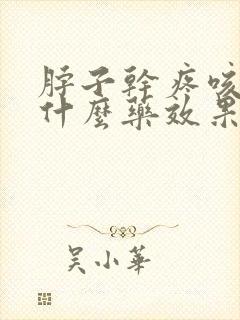 脖子幹疼咳
什麼藥效果
吴小華